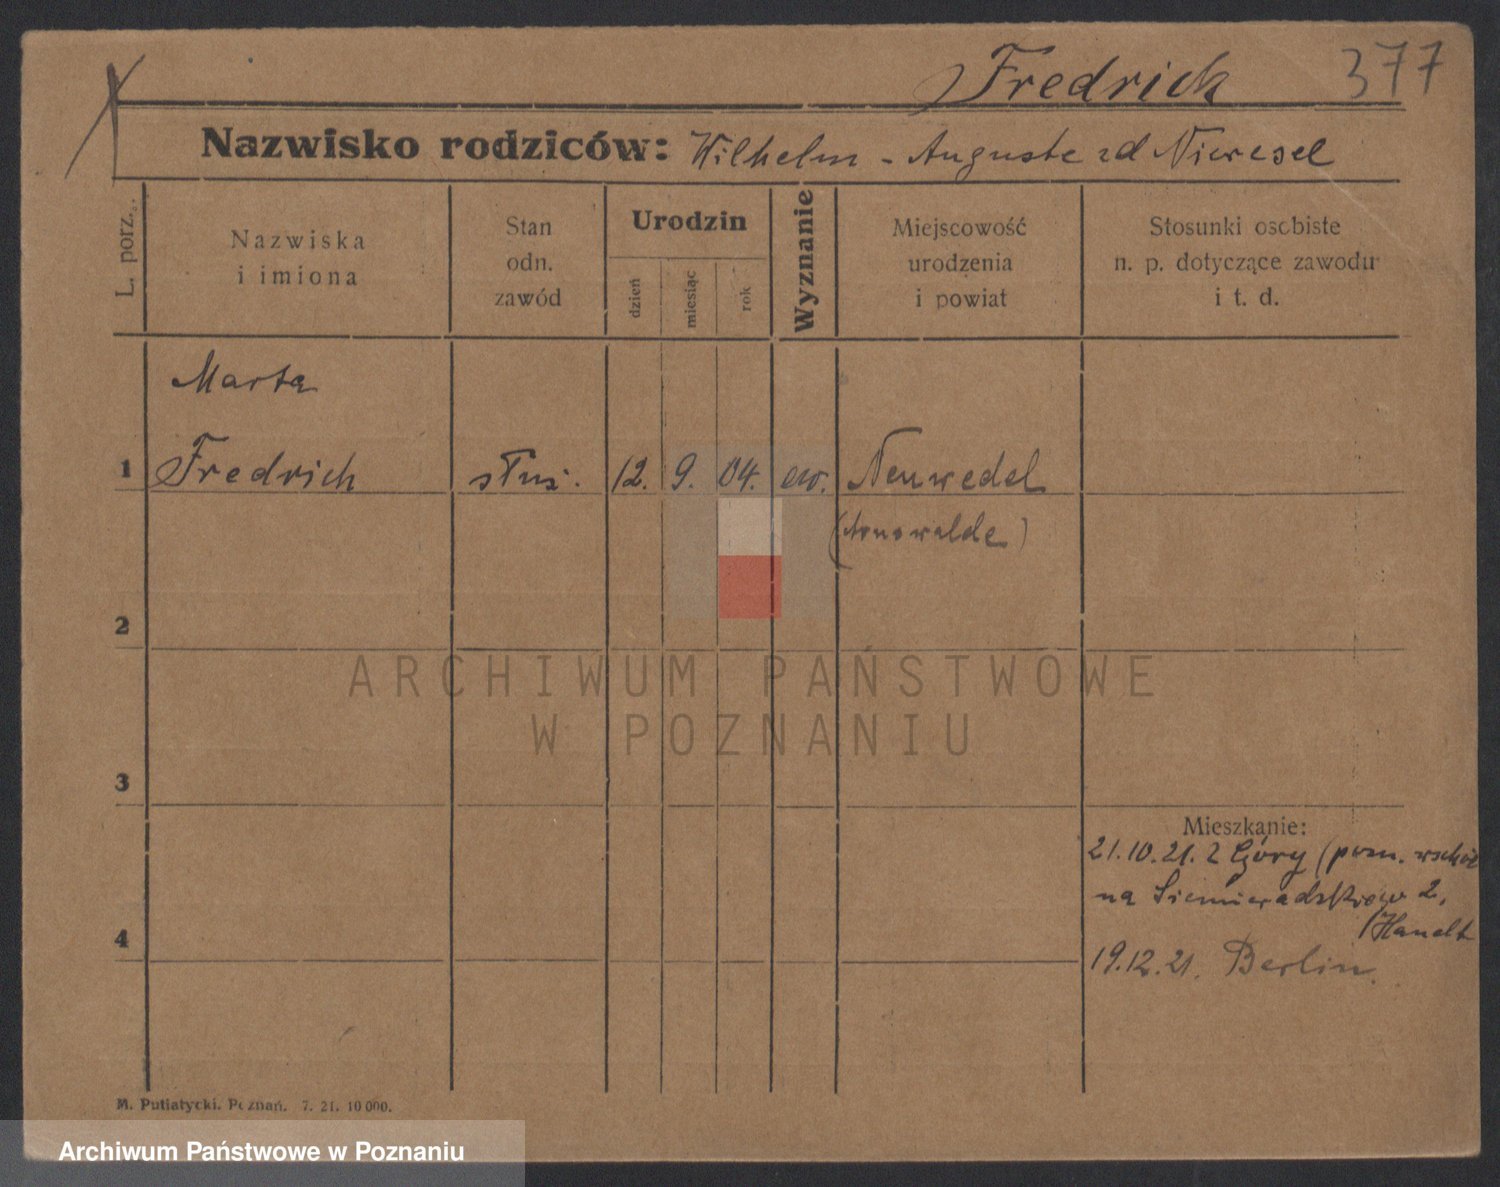 Fredrich 377
Nazwisko rodziców: Wilhelm - Auguste zd
L. porz.
Nazwiska
i imiona
Stan
odn.
zawód
Urodzin
dzień
miesiąc
rok
Wyznanie
Miejscowość
urodzenia
i powiat
Stosunki osobiste
n. p. dotyczące zawodu
i t. d.
Marta
1 Fredrich służ. 12. 9. 04. ew. Neuwedel
(Arnswalde)
2
ARCHIWUM PAŃSTWOWE
W POZNANIU
3
Mieszkanie:
21.10.21. z Góry (pozn. wschód
na Siemieradzkiego 2.
4
19.12.21. Berlin.
M. Putiatycki. Poznań. 7. 21. 10 000.
Archiwum Państwowe w Poznaniu